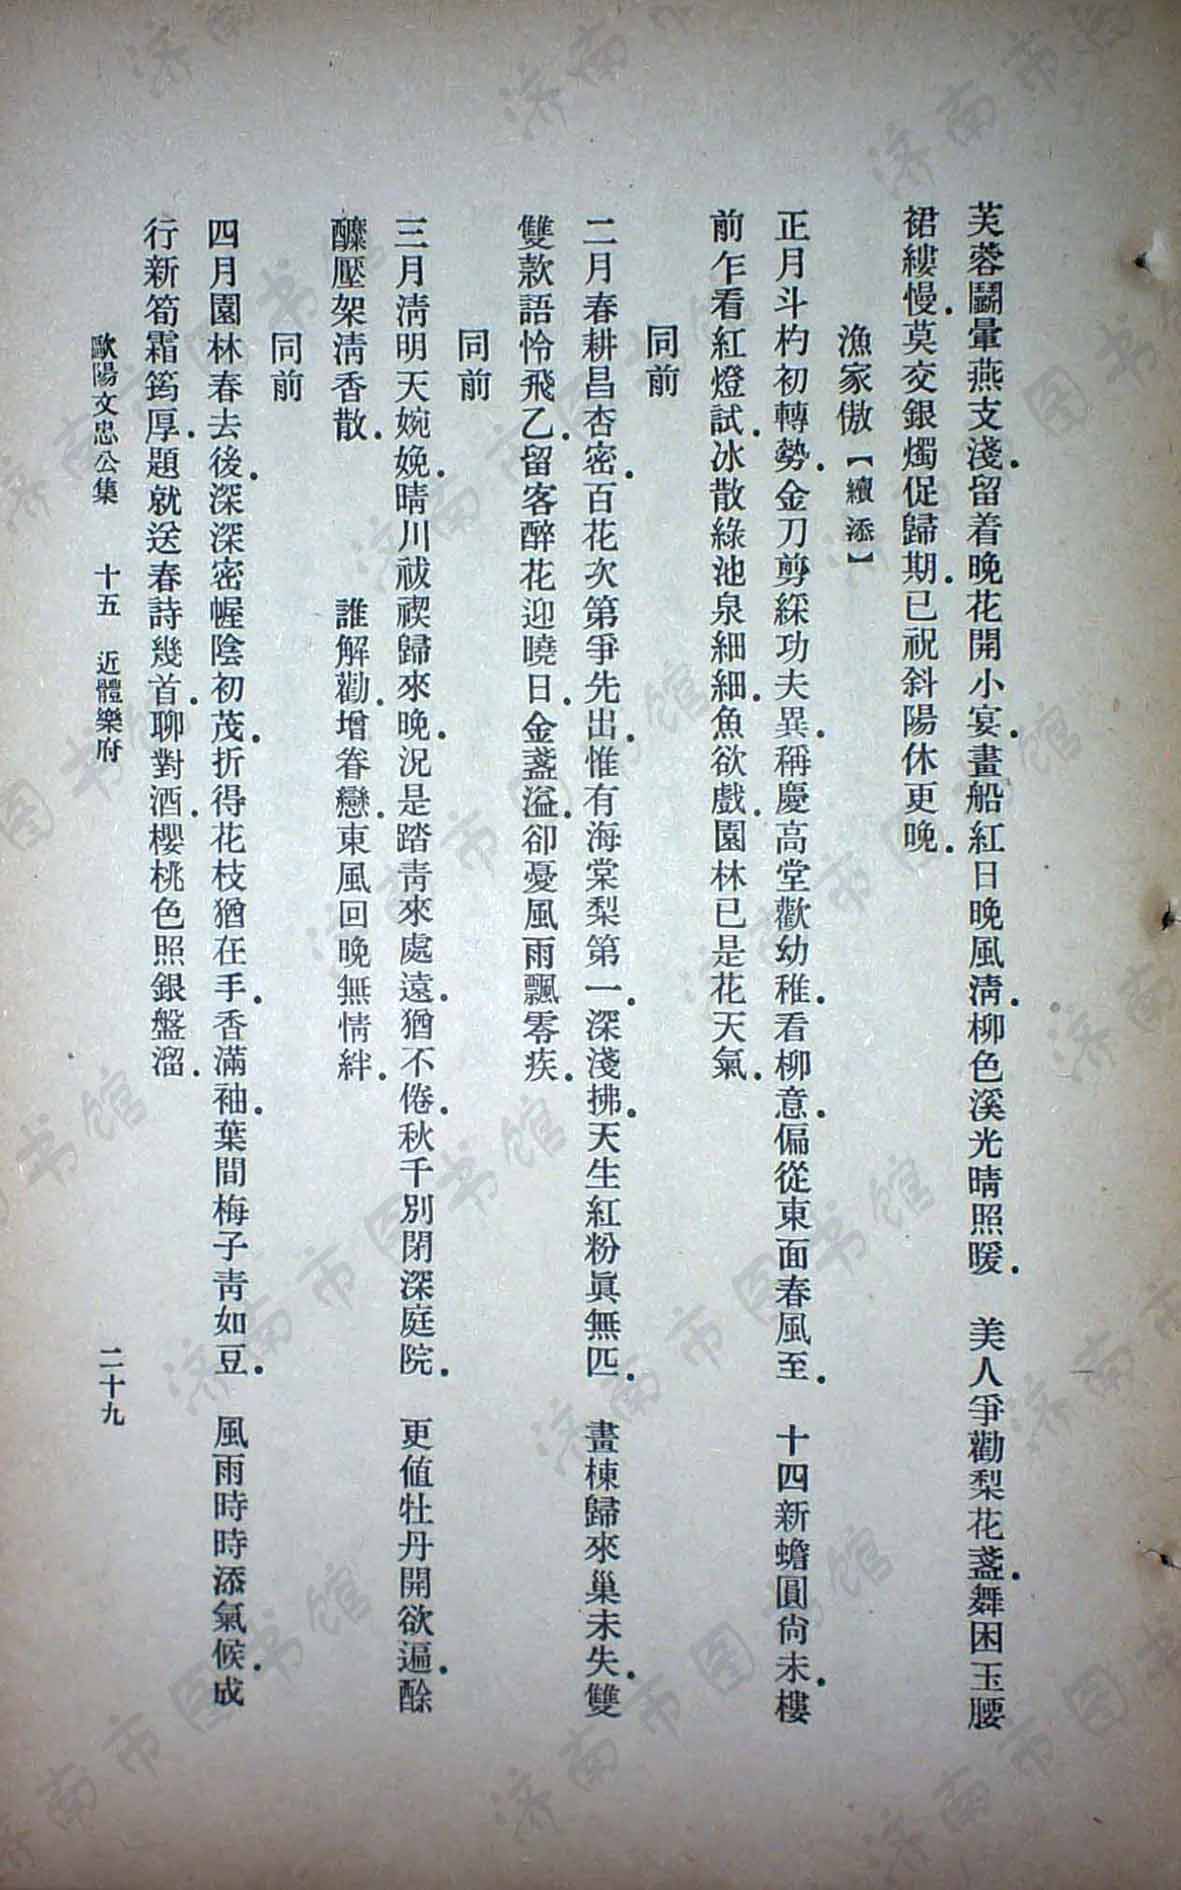 芙蓉鬭暈燕支淺．留着晚花開小宴．畫船紅日晚風淸．柳色溪光晴照暖．　美人爭勸梨花盞．舞困玉腰
裙縷慢．莫交銀燭促歸期．已祝斜陽休更晚．
漁家傲【續添】
正月斗杓初轉勢．金刀剪綵功夫異．稱慶高堂歡幼稚．看柳意．偏從東面春風至．　十四新蟾圓尙未．樓
前乍看紅燈試．冰散綠池泉細細．魚欲戲．園林已是花天氣．
同前
二月春耕昌杏密．百花次第爭先出．惟有海棠梨第一．深淺拂．天生紅粉眞無匹．　畫棟歸來巢未失．雙
雙款語怜飛乙．留客醉花迎曉日．金盞溢．卻憂風雨飄零疾．
同前
三月淸明天婉娩．晴川祓禊歸來晚．況是踏靑來處遠．猶不倦．秋千別閉深庭院．　更値牡丹開欲遍．酴
醾壓架淸香散．　　　　誰解勸．增眷戀．東風回晚無情絆．
同前
四月園林春去後．深深密幄陰初茂．折得花枝猶在手．香滿袖．葉間梅子靑如豆．　風雨時時添氣候．成
行新筍霜筠厚．題就送春詩幾首．聊對酒．櫻桃色照銀盤溜．
歐陽文忠公集　十五　近體樂府　二十九
济南市图书馆